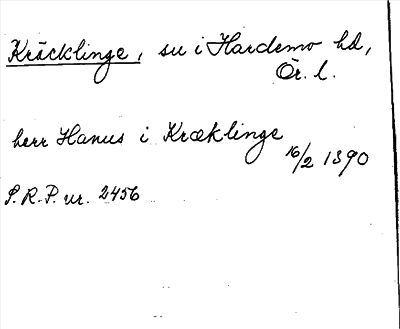 Kräcklinge, su i Hardemo hd,
Ör. l.
herr Hanus i Kræklinge
16/2 1390
S.R.P. nr. 2456